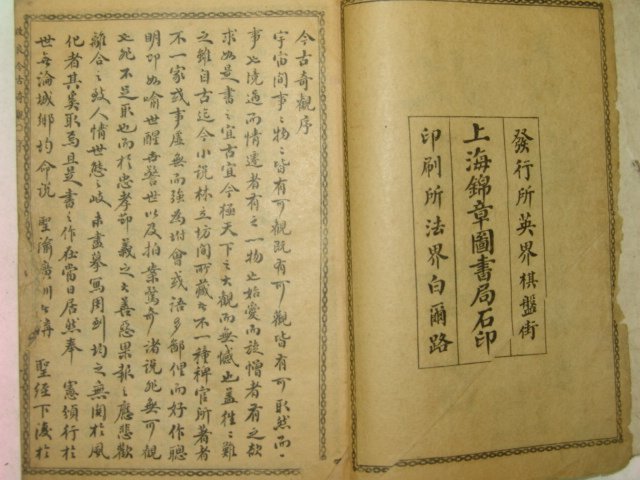 發行所英界棋盤街
上海錦章圖書局石印
印刷所法界白爾路
今古奇觀序
宇宙間事〻物〻皆有可觀既有可觀皆有可取然而一
事也境過而情遷者有之一物也始愛而旋憎者有之欲
求如是書之宜古宜今極天下之大觀而無憾也蓋往〻難
之雖自古迄今小說林立坊間所藏者不一種稗官所著者
不一家或事屬虛無而強為附會或語多鄙俚而好作聰
明即如喻世醒世警世以及拍案驚奇諸說非無可觀
也然不足取也而於忠孝節義之大善惡果報之應悲歡
離合之致人情世態之歧未盡摹寫周到均之無関於風
化者其奚取焉且是書之作在當日居然奉 憲頒行於
世無論城鄉均命說 聖諭廣川
聖經下